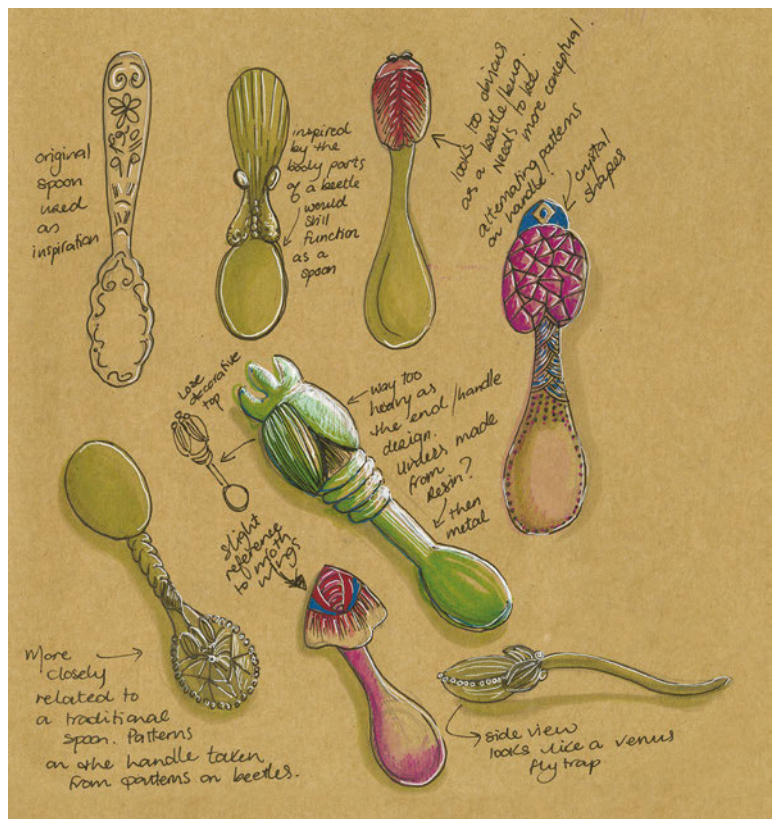 original
spoon
used
as
inspiration
inspired
by the
body parts
of a beetle
would
still
function
as a
spoon
looks too obvious
as a beetle/bug.
Needs to be
more conceptual.
alternating patterns
on handle!
crystal
shapes
Lose
decorative
top
way too
heavy as
the end/handle
design.
Unless made
from
Resin?
then
metal
slight
reference
to moth
wings
More
closely
related to
a traditional
spoon. Patterns
on the handle taken
from patterns on beetles.
side view
looks like a venus
fly trap